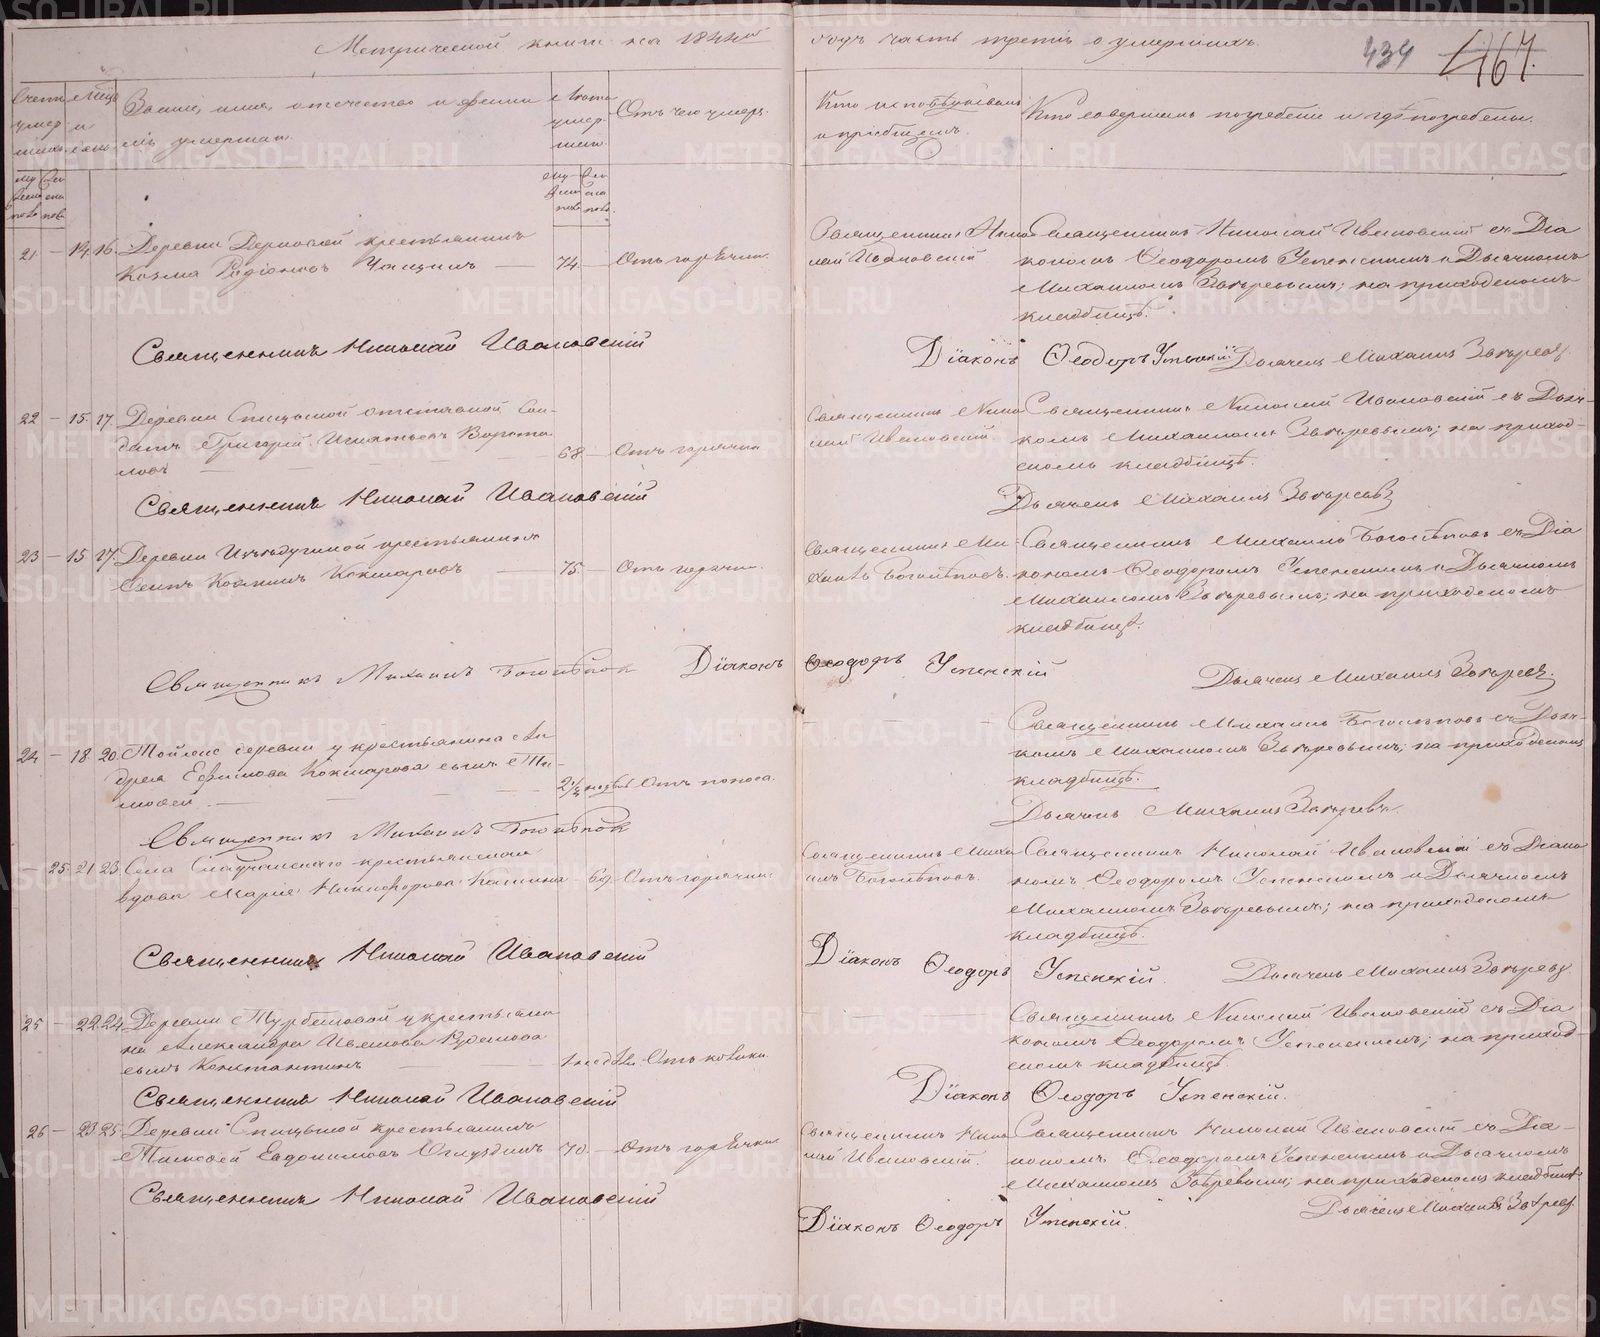 Метрической книги на 1844й годъ часть третія о умершихъ.
434 467.
Счетъ умершихъ.
Мѣсяцъ и день
Званіе, имя, отечество и фамилія умершаго.
Лѣта умершаго
Отъ чего умеръ.
Кто исповѣдывалъ и пріобщалъ.
Кто совершалъ погребеніе и гдѣ погребены.
21 – 14. 16. Деревни крестьянинъ
Козма Родіоновъ – 74. – Отъ горячки.
Священникъ Николай Ивановскій
Священникъ Николай Ивановскій съ Діа
кономъ Ѳеодоромъ Успенскимъ и Дьячкомъ
Михаиломъ Звѣревымъ; на приходскомъ
кладбищѣ.
Священникъ Николай Ивановскій
Діаконъ Ѳеодоръ Успенскій Дьячекъ Михаилъ Звѣревъ.
22 – 15. 17. Деревни Спицыной отставной сол-
датъ Григорій Игнатьевъ
68 – Отъ горячки
Священникъ Нико
лай Ивановскій.
Священникъ Николай Ивановскій съ Дьяч-
комъ Михаиломъ Звѣревымъ; на приход-
скомъ кладбищѣ.
Священникъ Николай Ивановскій
Дьячекъ Михаилъ Звѣревъ
23 – 15 17. Деревни крестьянинъ
Козминъ Кокшаровъ – 75. – Отъ горячки.
Священникъ Ми-
хаилъ Боголѣповъ.
Священникъ Михаилъ Боголѣповъ съ Діа
кономъ Ѳеодоромъ Успенскимъ и Дьячкомъ
Михаиломъ Звѣревымъ; на приходскомъ
кладбищѣ.
Священникъ Михаилъ Боголѣповъ Діаконъ Ѳеодоръ Успенскій
Дьячекъ Михаилъ Звѣревъ.
24 – 18. 20. Тойже деревни у крестьянина Ан
дрея Ефимова Кокшарова сынъ Ти-
моѳей. – 2½ Отъ поноса.
Священникъ Михаилъ Боголѣповъ съ Дьяч-
комъ Михаиломъ Звѣревымъ; на приходскомъ
кладбищѣ.
Дьячекъ Михаилъ Звѣревъ.
Священникъ Михаилъ Боголѣповъ
– 25. 21 23. Села крестьянская
вдова Марія Никифорова Кашина – 69. Отъ горячки
Священникъ Миха
илъ Боголѣповъ.
Священникъ Николай Ивановскій съ Діако
номъ Ѳеодоромъ Успенскимъ и Дьячкомъ
Михаиломъ Звѣревымъ; на приходскомъ
кладбищѣ.
Священникъ Николай Ивановскій
Діаконъ Ѳеодоръ Успенскій. Дьячекъ Михаилъ Звѣревъ.
25 – 22. 24. Деревни у крестьяни
на Александра Иванова
сынъ Константинъ – 1 недѣли Отъ
Священникъ Николай Ивановскій съ Діа
кономъ Ѳеодоромъ Успенскимъ; на приход-
скомъ кладбищѣ.
Священникъ Николай Ивановскій
Діаконъ Ѳеодоръ Успенскій.
26 – 23. 25. Деревни Спицыной крестьянинъ
Евдокимовъ – 70. – Отъ горячки
Священникъ Нико
лай Ивановскій.
Священникъ Николай Ивановскій съ Діа-
кономъ Ѳеодоромъ Успенскимъ и Дьячкомъ
Михаиломъ Звѣревымъ; на приходскомъ кладбищѣ.
Священникъ Николай Ивановскій
Дьячекъ Михаилъ Звѣревъ.
Діаконъ Ѳеодоръ Успенскій.
METRIKI.GASO-URAL.RU